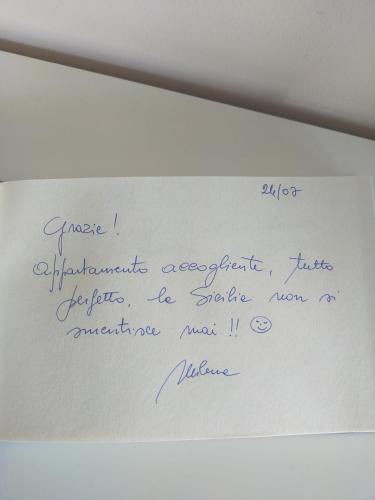 24/07
Grazie!
Appartamento accogliente, tutto
perfetto, la Sicilia non si
smentisce mai!! ☺
Milena